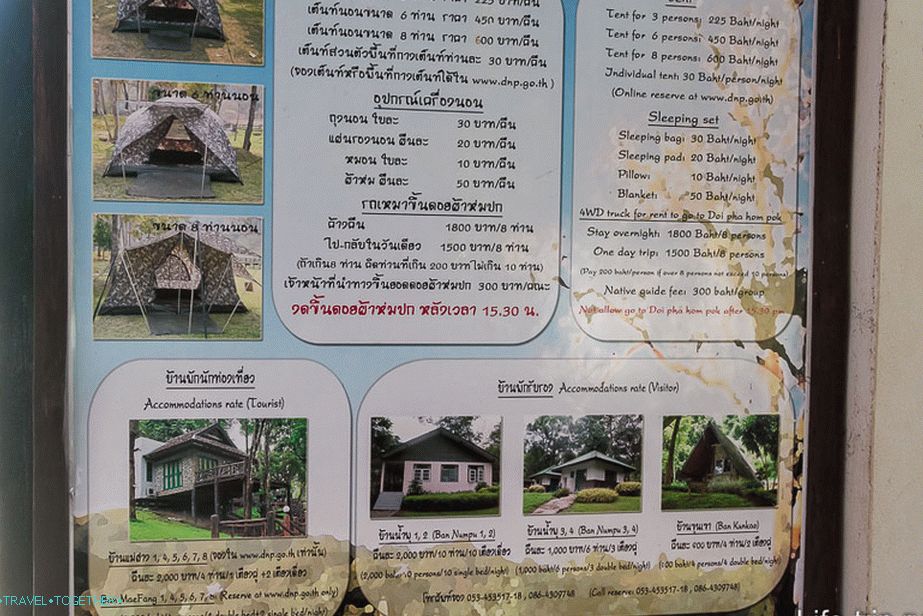 เต็นท์นอนขนาด 6 ท่าน ราคา 450 บาท/คืน
เต็นท์นอนขนาด 8 ท่าน ราคา 600 บาท/คืน
เต็นท์ส่วนตัวพื้นที่กางเต็นท์ท่านละ 30 บาท/คืน
(จองเต็นท์หรือพื้นที่กางเต็นท์ได้ใน www.dnp.go.th)
อุปกรณ์เครื่องนอน
ถุงนอน ใบละ 30 บาท/คืน
แผ่นรองนอน ผืนละ 20 บาท/คืน
หมอน ใบละ 10 บาท/คืน
ผ้าห่ม ผืนละ 50 บาท/คืน
รถเหมาขึ้นดอยผ้าห่มปก
ค้างคืน 1800 บาท/8 ท่าน
ไป-กลับในวันเดียว 1500 บาท/8 ท่าน
(ถ้าเกิน8 ท่าน คิดท่านที่เกิน 200 บาทไม่เกิน 10 ท่าน)
เจ้าหน้าที่นำทางขึ้นยอดดอยผ้าห่มปก 300 บาท/คณะ
งดขึ้นดอยผ้าห่มปก หลังเวลา 15.30 น.
Tent for 3 persons: 225 Baht/night
Tent for 6 persons: 450 Baht/night
Tent for 8 persons: 600 Baht/night
Individual tent: 30 Baht/person/night
(Online reserve at www.dnp.go.th)
Sleeping set
Sleeping bag: 30 Baht/night
Sleeping pad: 20 Baht/night
Pillow: 10 Baht/night
Blanket: 50 Baht/night
4WD truck for rent to go to Doi pha hom pok
Stay overnight: 1800 Baht/8 persons
One day trip: 1500 Baht/8 persons
(Pay 200 baht/person if over 8 persons not exceed 10 persons)
Native guide fee: 300 baht/group
Not allow go to Doi pha hom pok after 15.30 pm
ขนาด 6 ท่านนอน
ขนาด 8 ท่านนอน
บ้านพักนักท่องเที่ยว
Accommodations rate (Tourist)
บ้านแม่ฝาง 1, 4, 5, 6, 7, 8 (จองใน www.dnp.go.th เท่านั้น)
คืนละ 2,000 บาท/4 ท่าน/1 เตียงคู่ +2 เตียงเดี่ยว
MaeFang 1, 4, 5, 6, 7, 8 (Reserve at www.dnp.go.th only)
บ้านพักรับรอง Accommodations rate (Visitor)
บ้านน้ำพุ 1, 2 (Ban Numpu 1, 2)
คืนละ 2,000 บาท/10 ท่าน/10 เตียงเดี่ยว
(2,000 baht/10 persons/10 single bed/night)
บ้านน้ำพุ 3, 4 (Ban Numpu 3, 4)
คืนละ 1,000 บาท/6 ท่าน/3 เตียงคู่
(1,000 baht/6 persons/3 double bed/night)
บ้านขุนเขา (Ban Kunkao)
คืนละ 800 บาท/4 ท่าน/2 เตียงคู่
โทรศัพท์จอง 053-453517-18, 086-4309748 (Call reserve: 053-453517-18, 086-4309748)
TRAVEL•TOGETHER
Life-trip